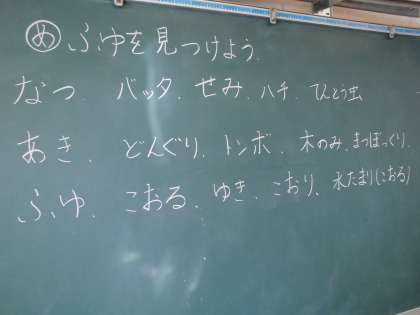 め ふゆを見つけよう.
なつ バッタ. せみ. ハチ. てんとう虫
あき. どんぐり. トンボ. 木のみ. まつぼっくり.
ふゆ. こおる. ゆき. こおり. 水たまり(こおる)